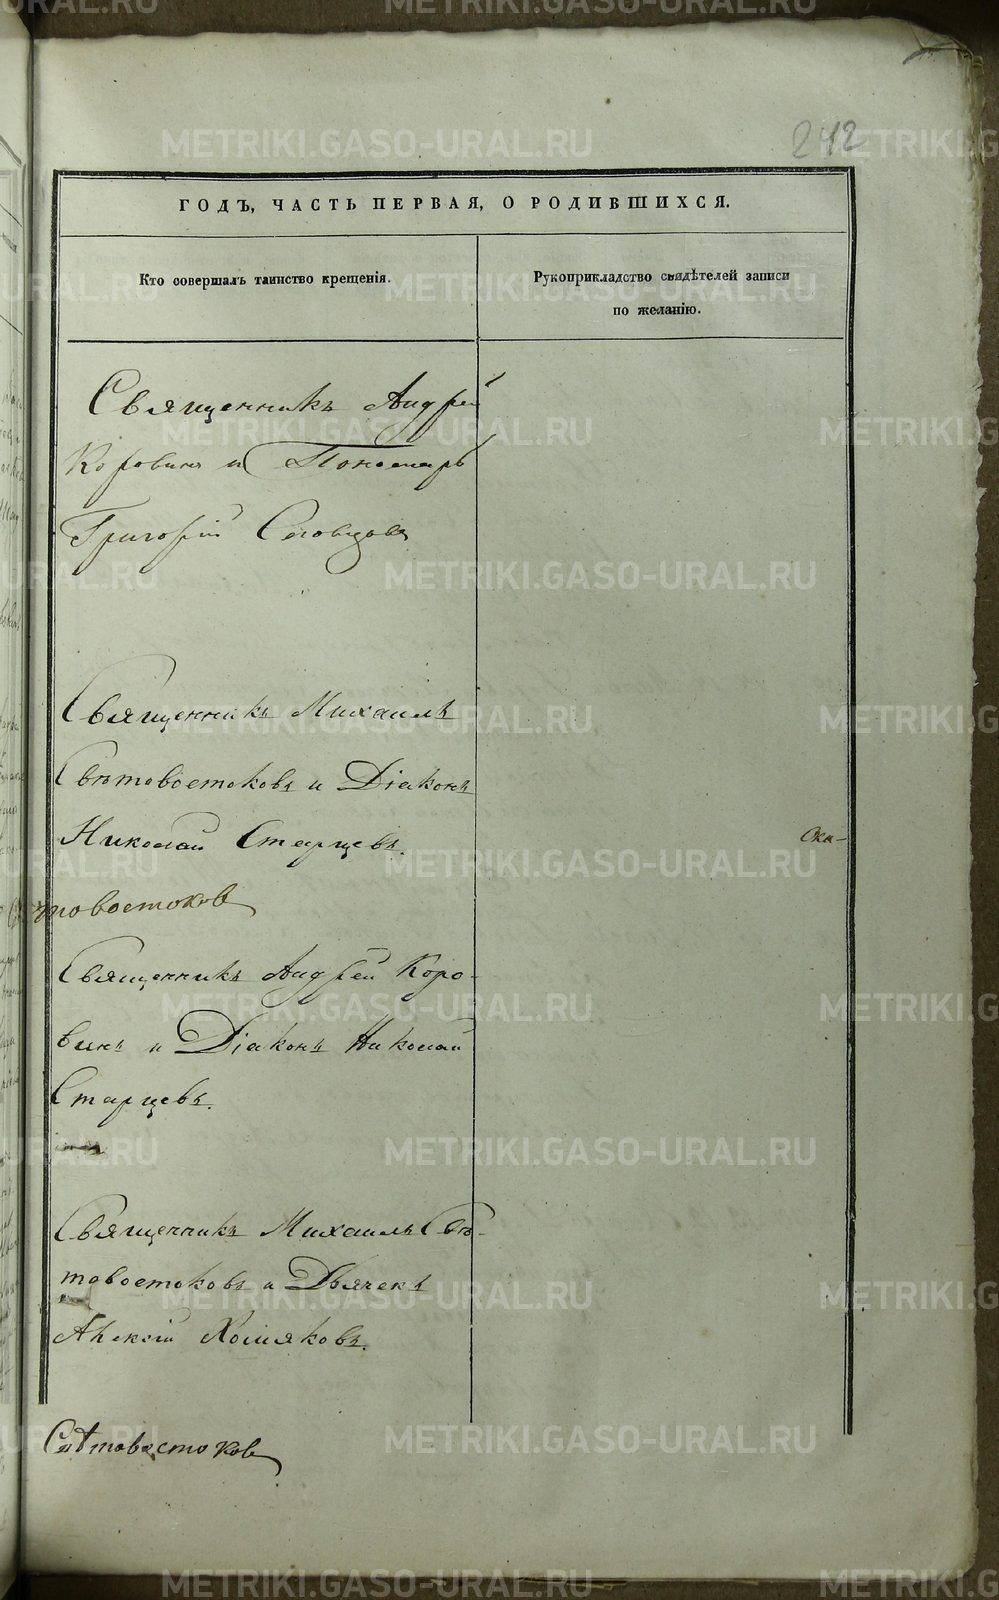 242
ГОДЪ, ЧАСТЬ ПЕРВАЯ, О РОДИВШИХСЯ.
Кто совершалъ таинство крещенія.
Рукоприкладство свидѣтелей записи
по желанію.
Священникъ Андрей
Коровинъ и Пономарь
Григорій Словцовъ
Священникъ Михаилъ
Свѣтовостоковъ и Діаконъ
Николай Старцевъ.
Свѣтовостоковъ
Священникъ Андрей Коро-
винъ и Діаконъ Николай
Старцевъ.
Священникъ Михаилъ Свѣ-
товостоковъ и Дьячекъ
Алексій Хомяковъ.
Свѣтовостоковъ
METRIKI.GASO-URAL.RU